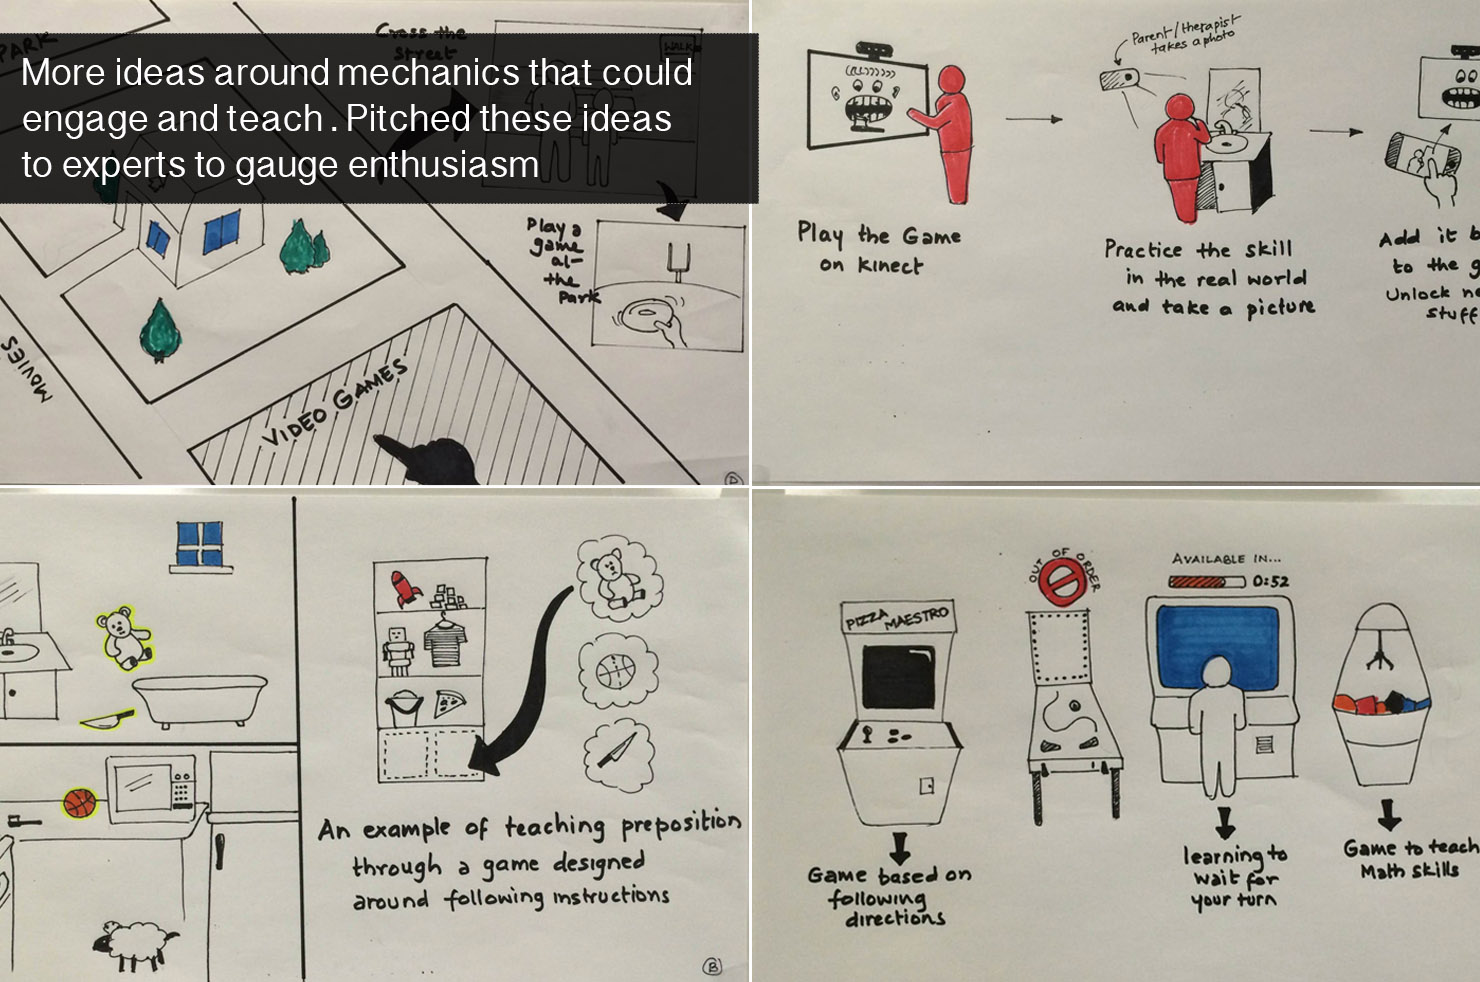 More ideas around mechanics that could
engage and teach . Pitched these ideas
to experts to gauge enthusiasm
PARK
Cross the
street
WALK
Play a
game
at
the
Park
MOVIES
VIDEO GAMES
Parent/therapist
takes a photo
Play the Game
on kinect
Practice the skill
in the real world
and take a picture
Add it
to the
Unlock
stuff
An example of teaching preposition
through a game designed
around following instructions
B
OUT OF ORDER
AVAILABLE IN...
0:52
PIZZA MAESTRO
Game based on
following
directions
learning to
wait for
your turn
Game to teach
Math skills